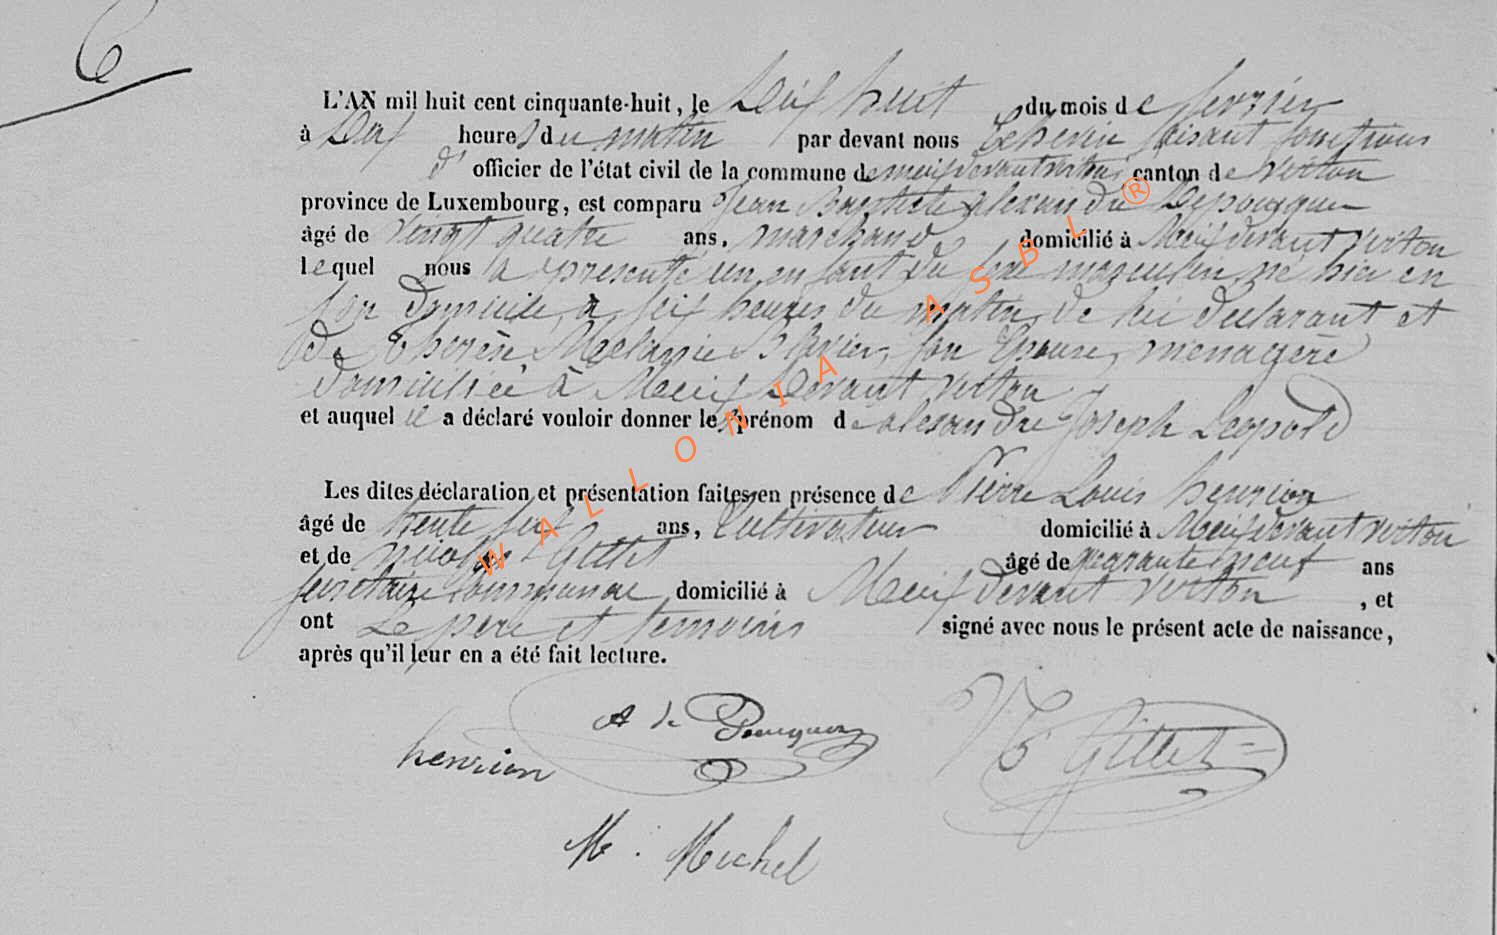 6
L'AN mil huit cent cinquante-huit, le dix huit du mois de fevrier
à dix heures du matin par devant nous Echevin faisant fonctions
d' officier de l'état civil de la commune de meix devant virton canton de virton
province de Luxembourg, est comparu Jean Baptiste alexandre Depouques
âgé de vingt quatre ans, marchand domicilié à Meix devant virton
lequel nous a présenté un enfant du sexe masculin né hier en
son domicile à six heures du matin, de lui déclarant et
de Thérèse Melanie son Epouse, ménagère
domiciliée à Meix devant virton
et auquel il a déclaré vouloir donner les prénom de alexandre Joseph Leopold
Les dites déclaration et présentation faites en présence de Pierre Louis henrion
âgé de trente six ans, Cultivateur domicilié à Meix devant virton
et de Gillet âgé de quarante neuf ans
secretaire communal domicilié à Meix devant virton, et
ont Le père et temoins signé avec nous le présent acte de naissance,
après qu'il leur en a été fait lecture.
A de Pouques
henrion
Gillet
M. Michel
WALLONIA ASBL ®